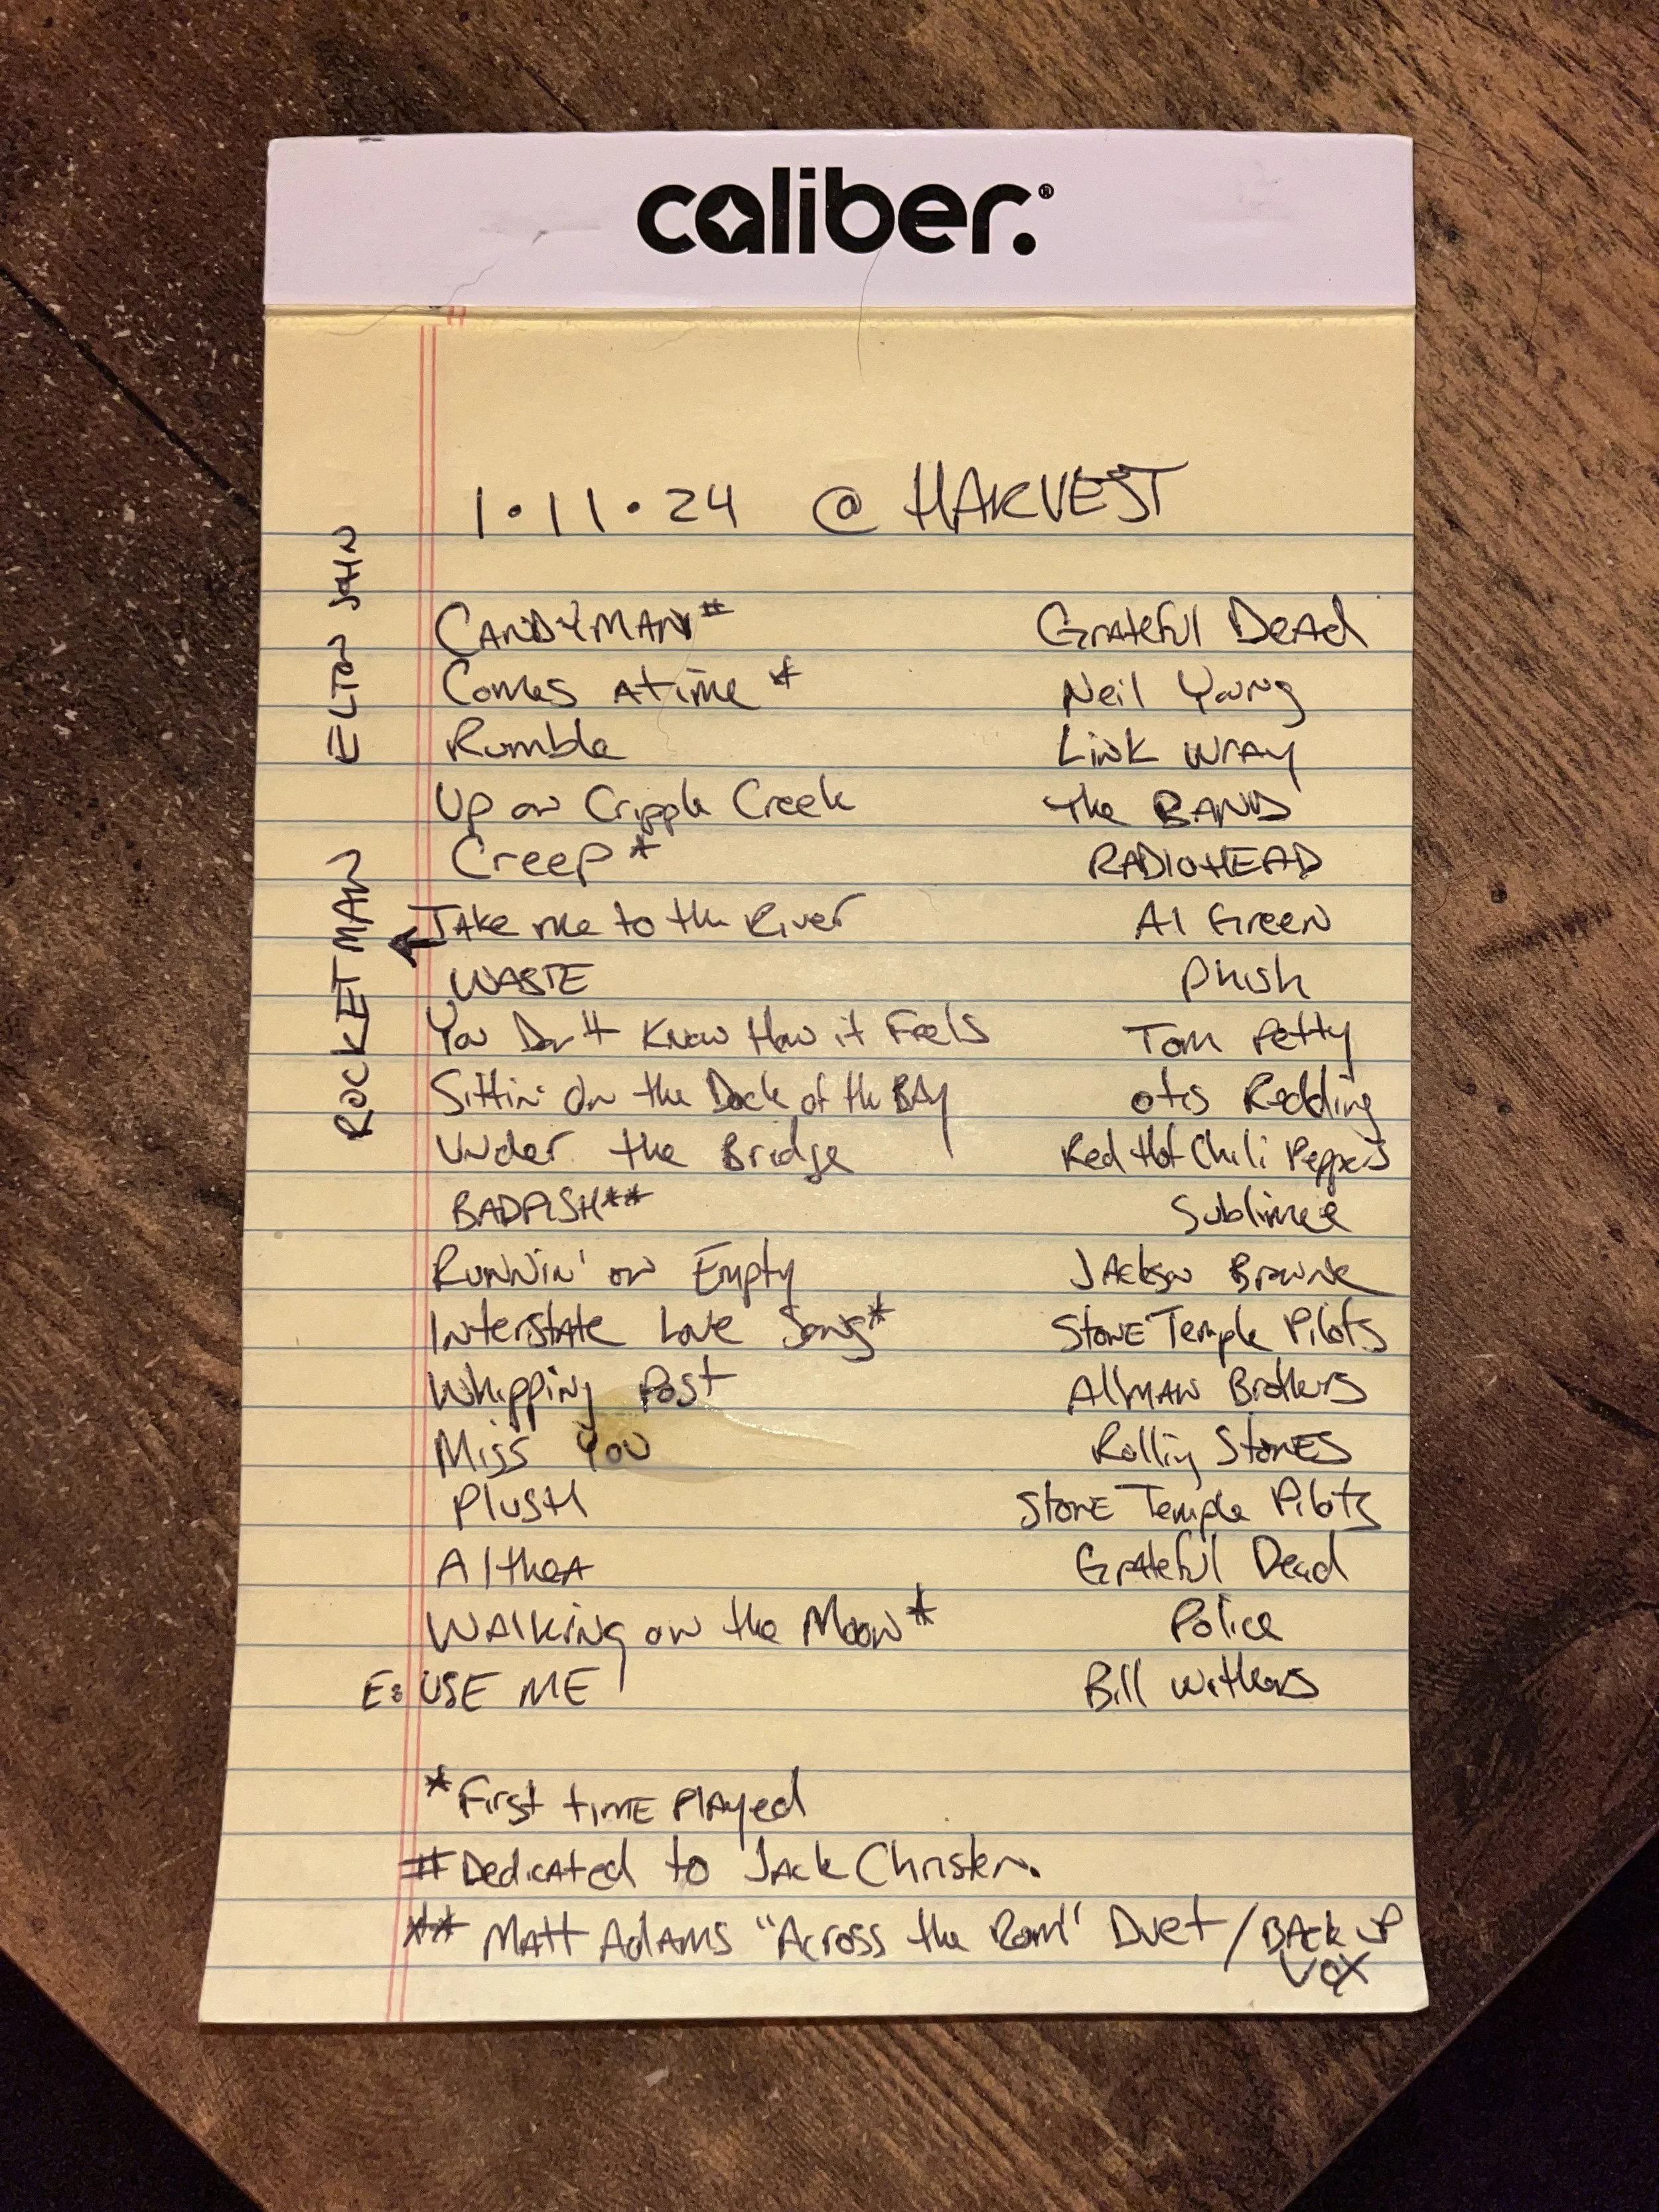 caliber.®
1·11·24 @ HARVEST
CANDYMAN# Grateful Dead
Comes A time * Neil Young
Rumble Link Wray
Up on Cripple Creek The BAND
Creep * RADIOHEAD
TAke me to the River Al Green
WASTE Phish
You Don't Know How it Feels Tom Petty
Sittin' On the Dock of the BAy Otis Redding
Under the Bridge Red Hot Chili Peppers
BADFISH** Sublime
Runnin' on Empty Jackson Browne
Interstate Love Song* Stone Temple Pilots
Whipping Post Allman Brothers
Miss You Rolling Stones
Plush Stone Temple Pilots
Althea Grateful Dead
Walking on the Moon* Police
E: USE ME Bill Withers
ROCKETMAN ELTON JOHN
* First time Played
# Dedicated to Jack Christen.
** Matt Adams "Across the Room" Duet / BAck up
VOX